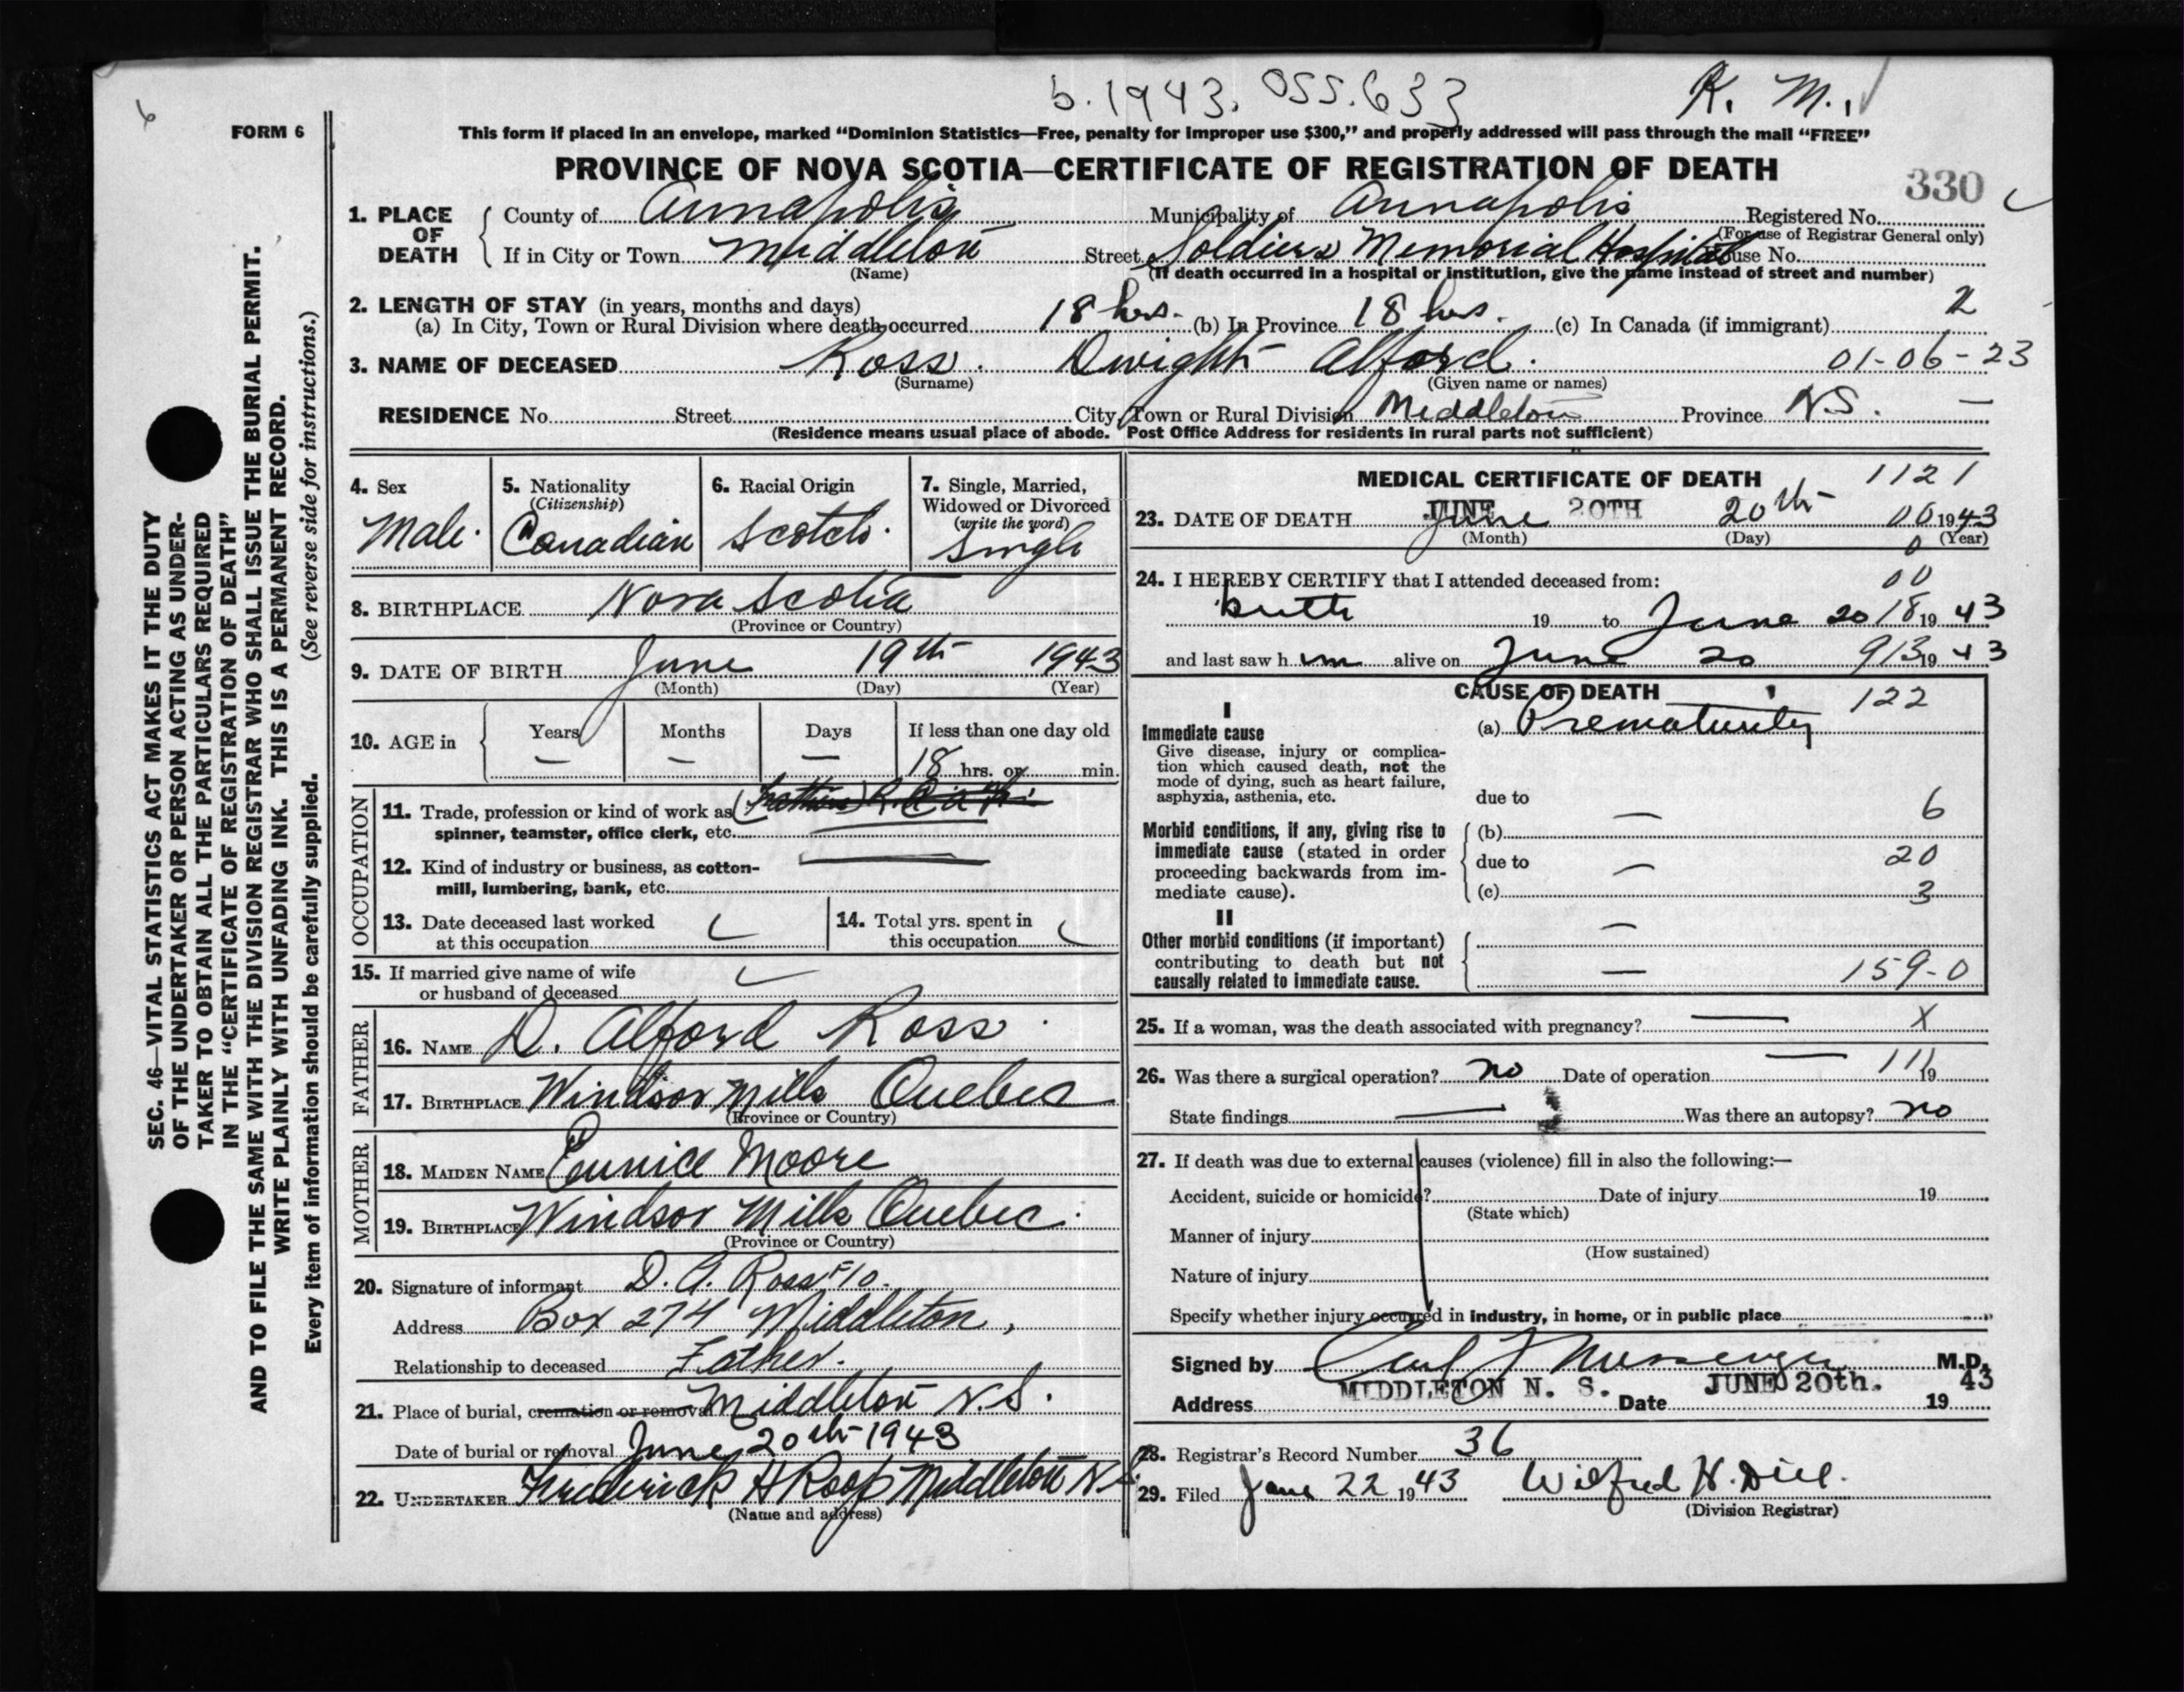 b. 1943. OSS. 633
K. M.
6
FORM 6
This form if placed in an envelope, marked "Dominion Statistics—Free, penalty for improper use $300," and properly addressed will pass through the mail "FREE"
PROVINCE OF NOVA SCOTIA—CERTIFICATE OF REGISTRATION OF DEATH
330
1. PLACE OF DEATH County of Annapolis Municipality of Annapolis Registered No.
(For use of Registrar General only)
If in City or Town Middleton Street Soldiers Memorial Hospital House No.
(Name) (If death occurred in a hospital or institution, give the name instead of street and number)
2. LENGTH OF STAY (in years, months and days) 2
(a) In City, Town or Rural Division where death occurred 18 hrs. (b) In Province 18 hrs. (c) In Canada (if immigrant)
3. NAME OF DECEASED Ross. Dwight Alford. 01-06-23
(Surname) (Given name or names)
RESIDENCE No. Street City, Town or Rural Division Middleton Province N.S. —
(Residence means usual place of abode. Post Office Address for residents in rural parts not sufficient)
SEC. 46—VITAL STATISTICS ACT MAKES IT THE DUTY
OF THE UNDERTAKER OR PERSON ACTING AS UNDER-
TAKER TO OBTAIN ALL THE PARTICULARS REQUIRED
IN THE "CERTIFICATE OF REGISTRATION OF DEATH"
AND TO FILE THE SAME WITH THE DIVISION REGISTRAR WHO SHALL ISSUE THE BURIAL PERMIT.
WRITE PLAINLY WITH UNFADING INK. THIS IS A PERMANENT RECORD.
Every item of information should be carefully supplied. (See reverse side for instructions.)
4. Sex
Male.
5. Nationality
(Citizenship)
Canadian
6. Racial Origin
Scotch.
7. Single, Married,
Widowed or Divorced
(write the word)
Single
8. BIRTHPLACE Nova Scotia
(Province or Country)
9. DATE OF BIRTH June 19th 1943
(Month) (Day) (Year)
10. AGE in Years — Months — Days — If less than one day old
18 hrs. or min.
OCCUPATION
11. Trade, profession or kind of work as
spinner, teamster, office clerk, etc.
12. Kind of industry or business, as cotton-
mill, lumbering, bank, etc.
13. Date deceased last worked
at this occupation
14. Total yrs. spent in
this occupation
15. If married give name of wife
or husband of deceased
FATHER
16. NAME D. Alford Ross.
17. BIRTHPLACE Windsor Mills Quebec
(Province or Country)
MOTHER
18. MAIDEN NAME Eunice Moore
19. BIRTHPLACE Windsor Mills Quebec.
(Province or Country)
20. Signature of informant D. A. Ross F/O.
Address Box 274 Middleton,
Relationship to deceased Father.
21. Place of burial, cremation or removal Middleton N.S.
Date of burial or removal June 20th 1943
22. UNDERTAKER Frederick H Roop Middleton N.S.
(Name and address)
MEDICAL CERTIFICATE OF DEATH 1121
23. DATE OF DEATH JUNE June 20TH 20th 00 1943
(Month) (Day) 0 (Year)
24. I HEREBY CERTIFY that I attended deceased from: 00
birth 19 to June 20 18 19 43
and last saw h im alive on June 20 913 19 43
CAUSE OF DEATH 122
I
Immediate cause
Give disease, injury or complica-
tion which caused death, not the
mode of dying, such as heart failure,
asphyxia, asthenia, etc.
(a) Prematurity
due to
6
Morbid conditions, if any, giving rise to
immediate cause (stated in order
proceeding backwards from im-
mediate cause).
(b) —
due to 20
(c) — 3
II
Other morbid conditions (if important)
contributing to death but not
causally related to immediate cause.
—
— 159-0
25. If a woman, was the death associated with pregnancy? — X
26. Was there a surgical operation? no Date of operation — 111 19
State findings — Was there an autopsy? no
27. If death was due to external causes (violence) fill in also the following:—
Accident, suicide or homicide? Date of injury 19
(State which)
Manner of injury
(How sustained)
Nature of injury
Specify whether injury occurred in industry, in home, or in public place
Signed by Messenger M.D.
Address MIDDLETON N. S. Date JUNE 20th. 19 43
28. Registrar's Record Number 36
29. Filed June 22 1943 Wilfred H. Dill.
(Division Registrar)